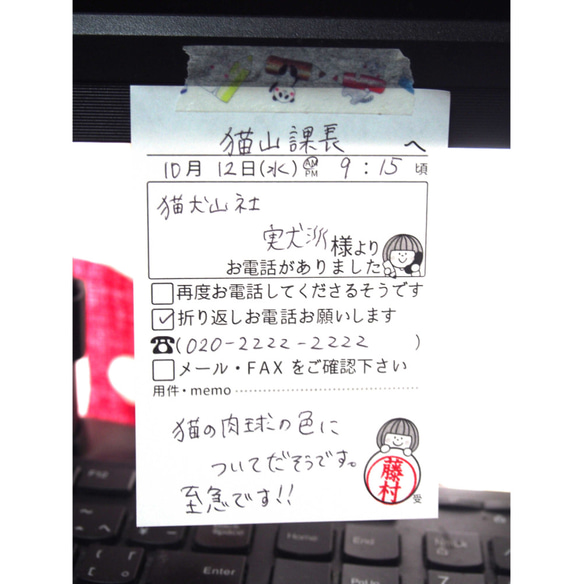 猫山課長 へ
10月 12日(水) AM PM 9:15 頃
猫犬山社
実犬派様より
お電話がありました
再度お電話してくださるそうです
折り返しお電話お願いします
(020-2222-2222)
メール・FAXをご確認下さい
用件・memo
猫の肉球の色に
ついてだそうです。
至急です!!
藤村
受
Home
End